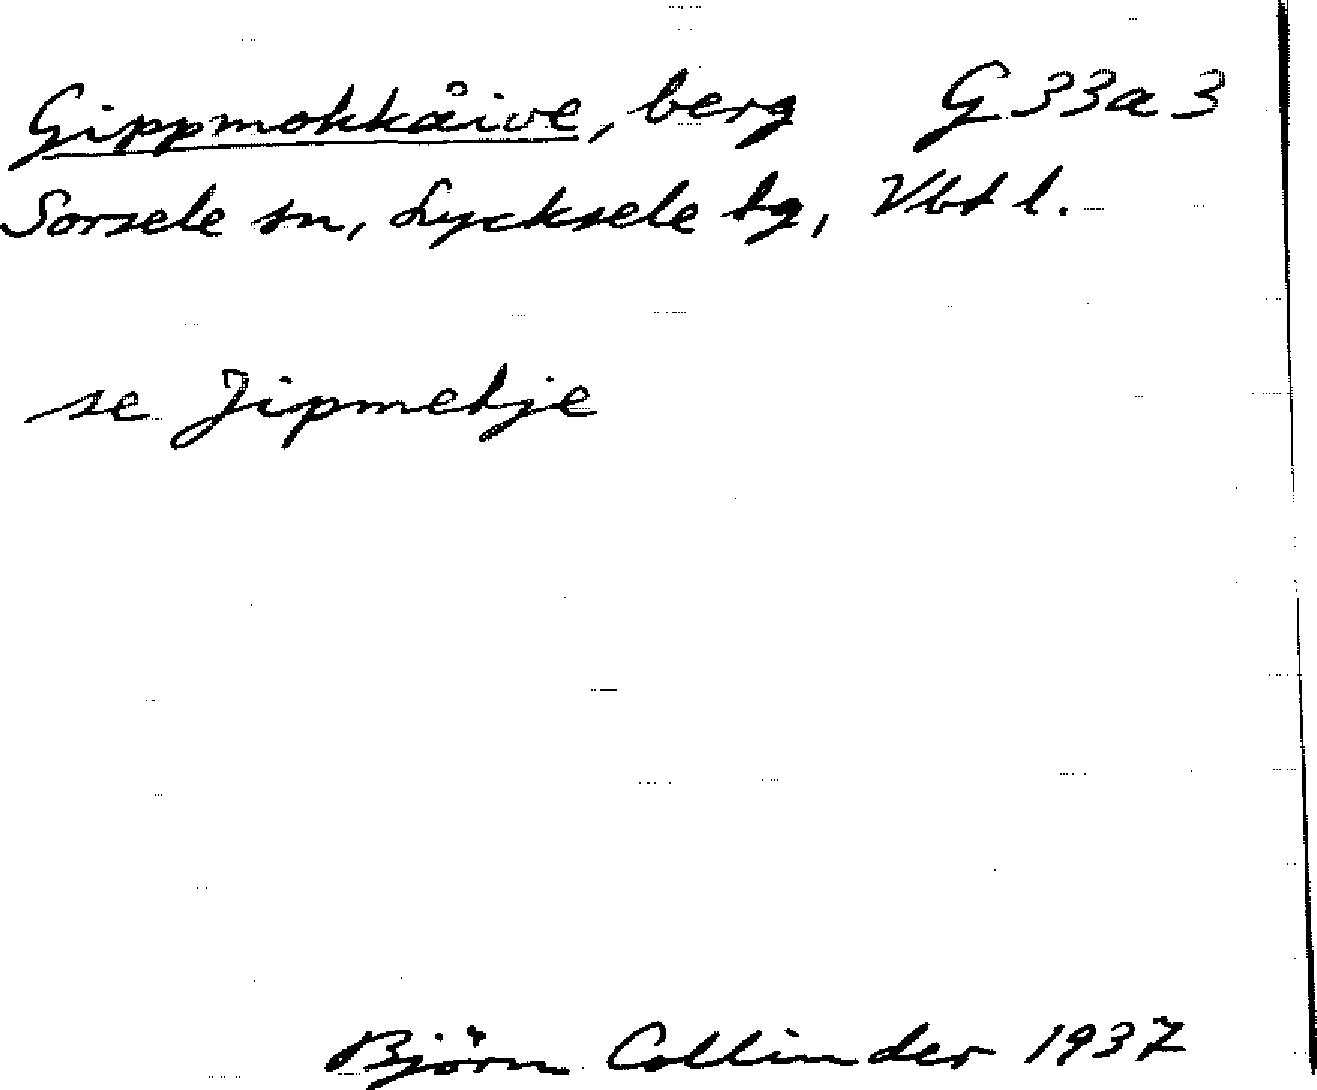 Gippmokkåive, berg G 33a 3
Sorsele sn, Lycksele tg, Vbt l.
se Jipmetje
Björn Collinder 1937